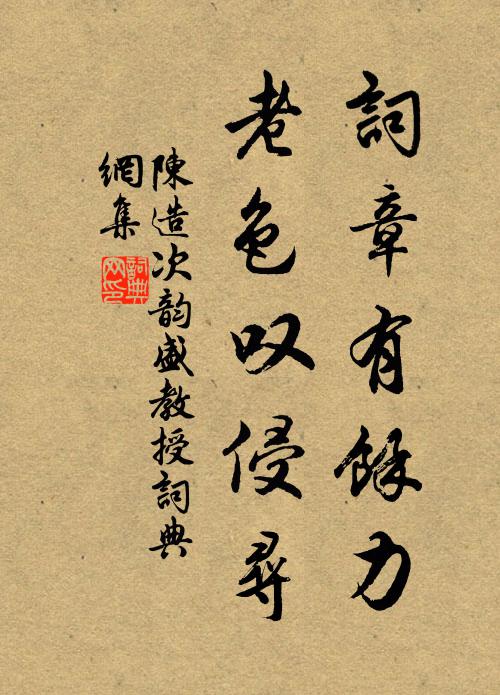 詞章有餘力
老色叹侵尋
陳造次韵盛教授詞典
網集
詞典
网印